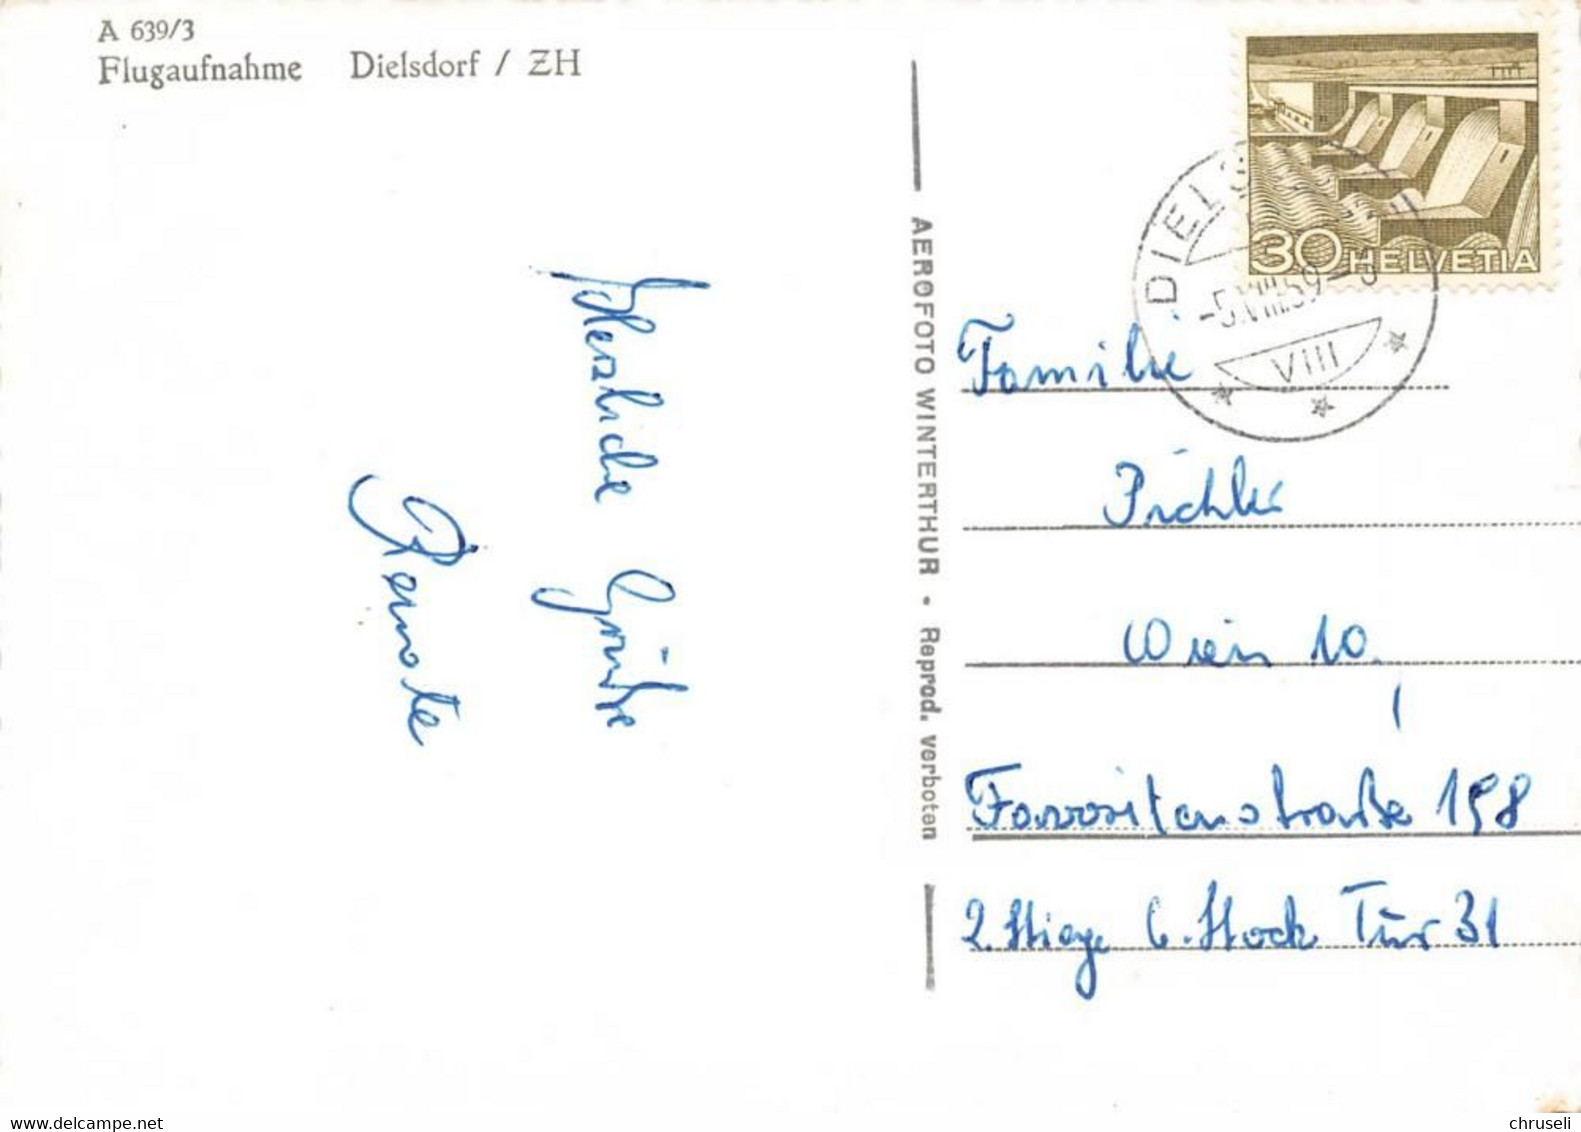 A 639/3
Flugaufnahme Dielsdorf / ZH
Herzliche Grüße
Renate
AEROFOTO WINTERTHUR • Reprod. verboten
30 HELVETIA
DIELS
-5.VIII.59-
VIII
Familie
Pichler
Wien 10,
Favoritenstraße 158
2. Stiege 6. Stock Tür 31
www.delcampe.net
chruseli